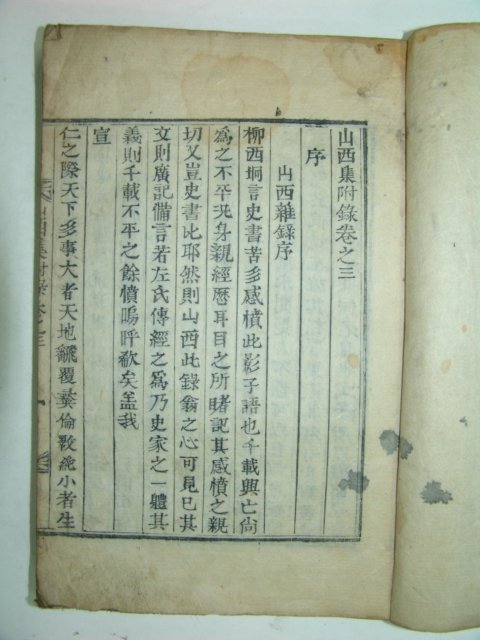 山西集附錄卷之三
序
山西雜錄序
柳西坰言史書苦多感憤此影子語也千載興亡尙
為之不平況身親經歷耳目之所睹記其感憤之親
切又豈史書比耶然則山西此錄翁之心可見已其
文則廣記備言若左氏傳經之為乃史家之一體其
義則千載不平之餘憤嗚呼欷矣盖我
宣
仁之際天下多事大者天地飜覆彜倫斁絶小者生
山西集附錄卷之三
一